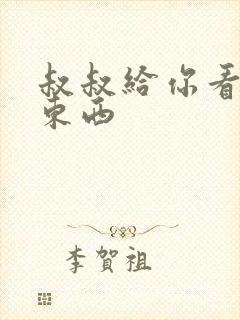 叔叔給你看
東西
李賀祖